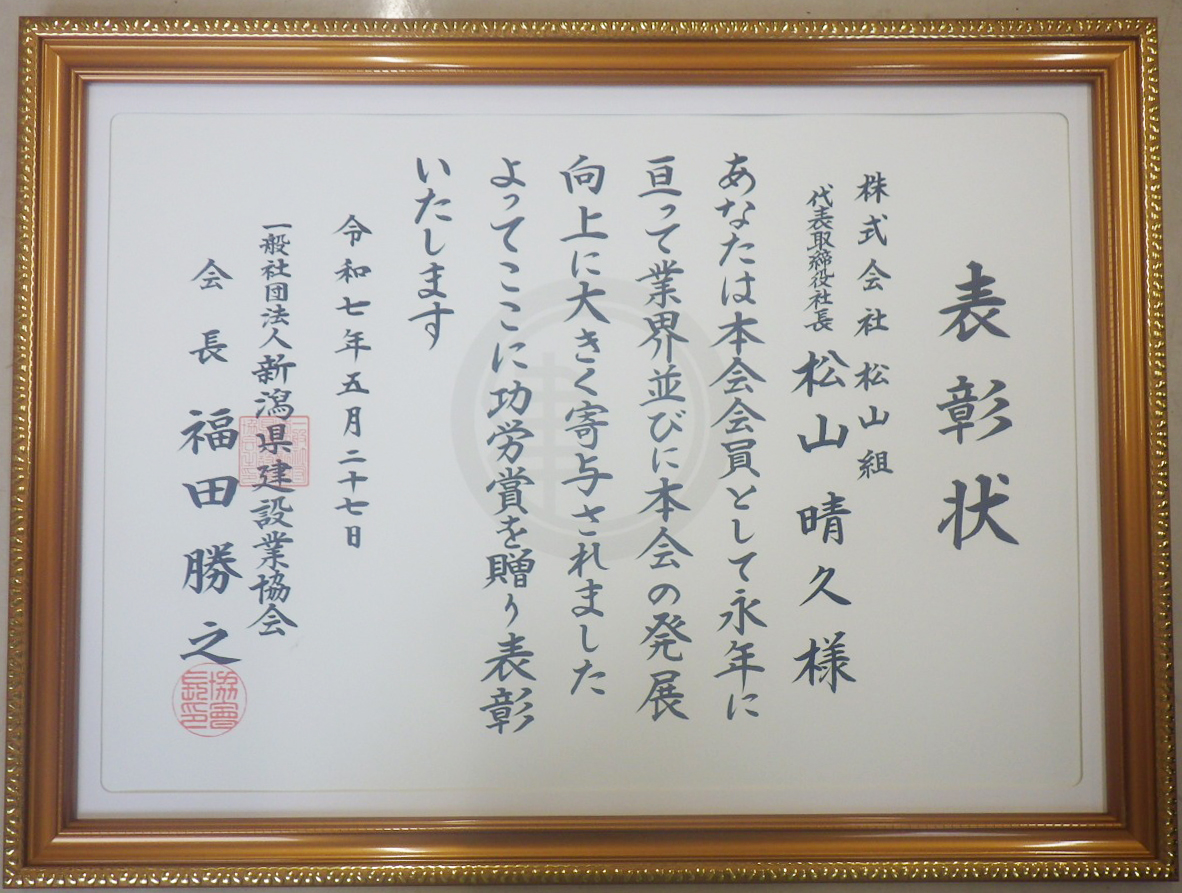 表彰状
株式会社 松山組
代表取締役社長 松山 晴久 様
あなたは本会会員として永年に
亘って業界並びに本会の発展
向上に大きく寄与されました
よってここに功労賞を贈り表彰
いたします
令和七年五月二十七日
一般社団法人新潟県建設業協会
会長 福田勝之
協會長印